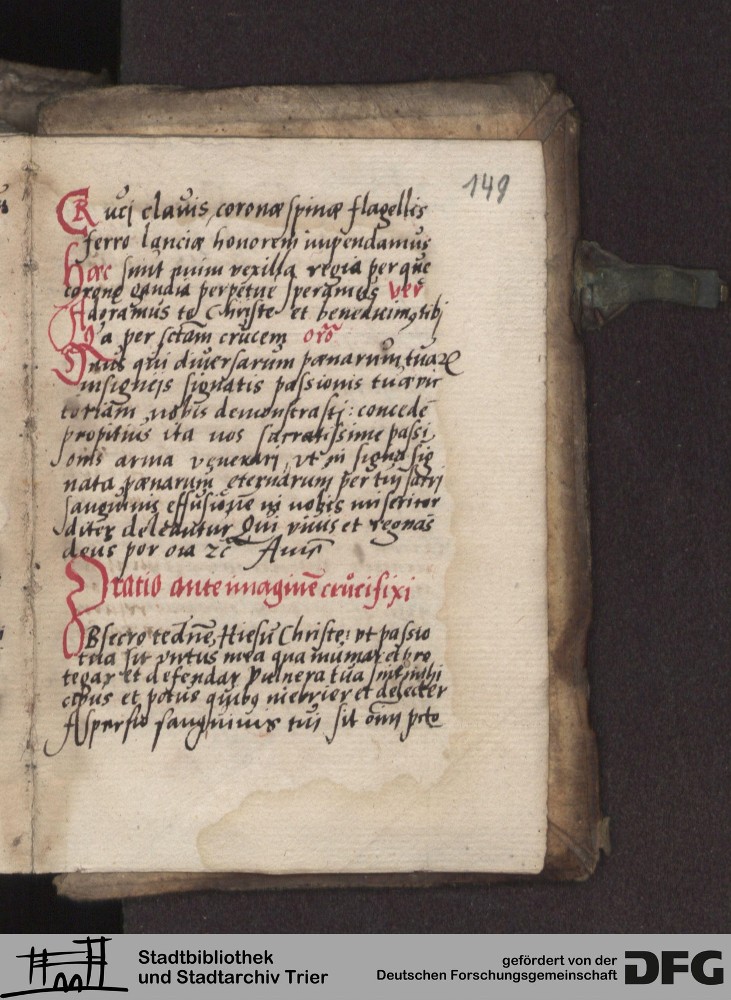 149
Crucj clauis, coronæ spinæ flagellis
ferro lanciæ honorem impendamus
hæc sunt enim vexilla regia per que
corone gaudia perpetue speramus ver
Adoramus te Christe et benedicimꝯ tibj
Qa per sctam crucem oro
Deus qui diuersarum pænarum tuaꝝ
insigneis signatis passionis tuæ vic
toriam nobis demonstrastj: concede
propitius ita nos sacratissime passi
onis arma venerari, vt in signa sig
nata pænarum eternarum per tuj sacri
sanguinis effusionē in nobis misericor
diter deleantur Qui viuis et regnas
deus per oīa zc Amē
Oratio ante imaginē crucifixi
OBsecro te dnē Hiesu Christe: vt passio
tua sit virtus mea qua muniar et pro
tegar et defendar vulnera tua sint mihi
cibus et potus quibꝯ inebrier et delecter
Aspersio sanguinis tui sit oīm pcto
Stadtbibliothek
und Stadtarchiv Trier
gefördert von der
Deutschen Forschungsgemeinschaft
DFG